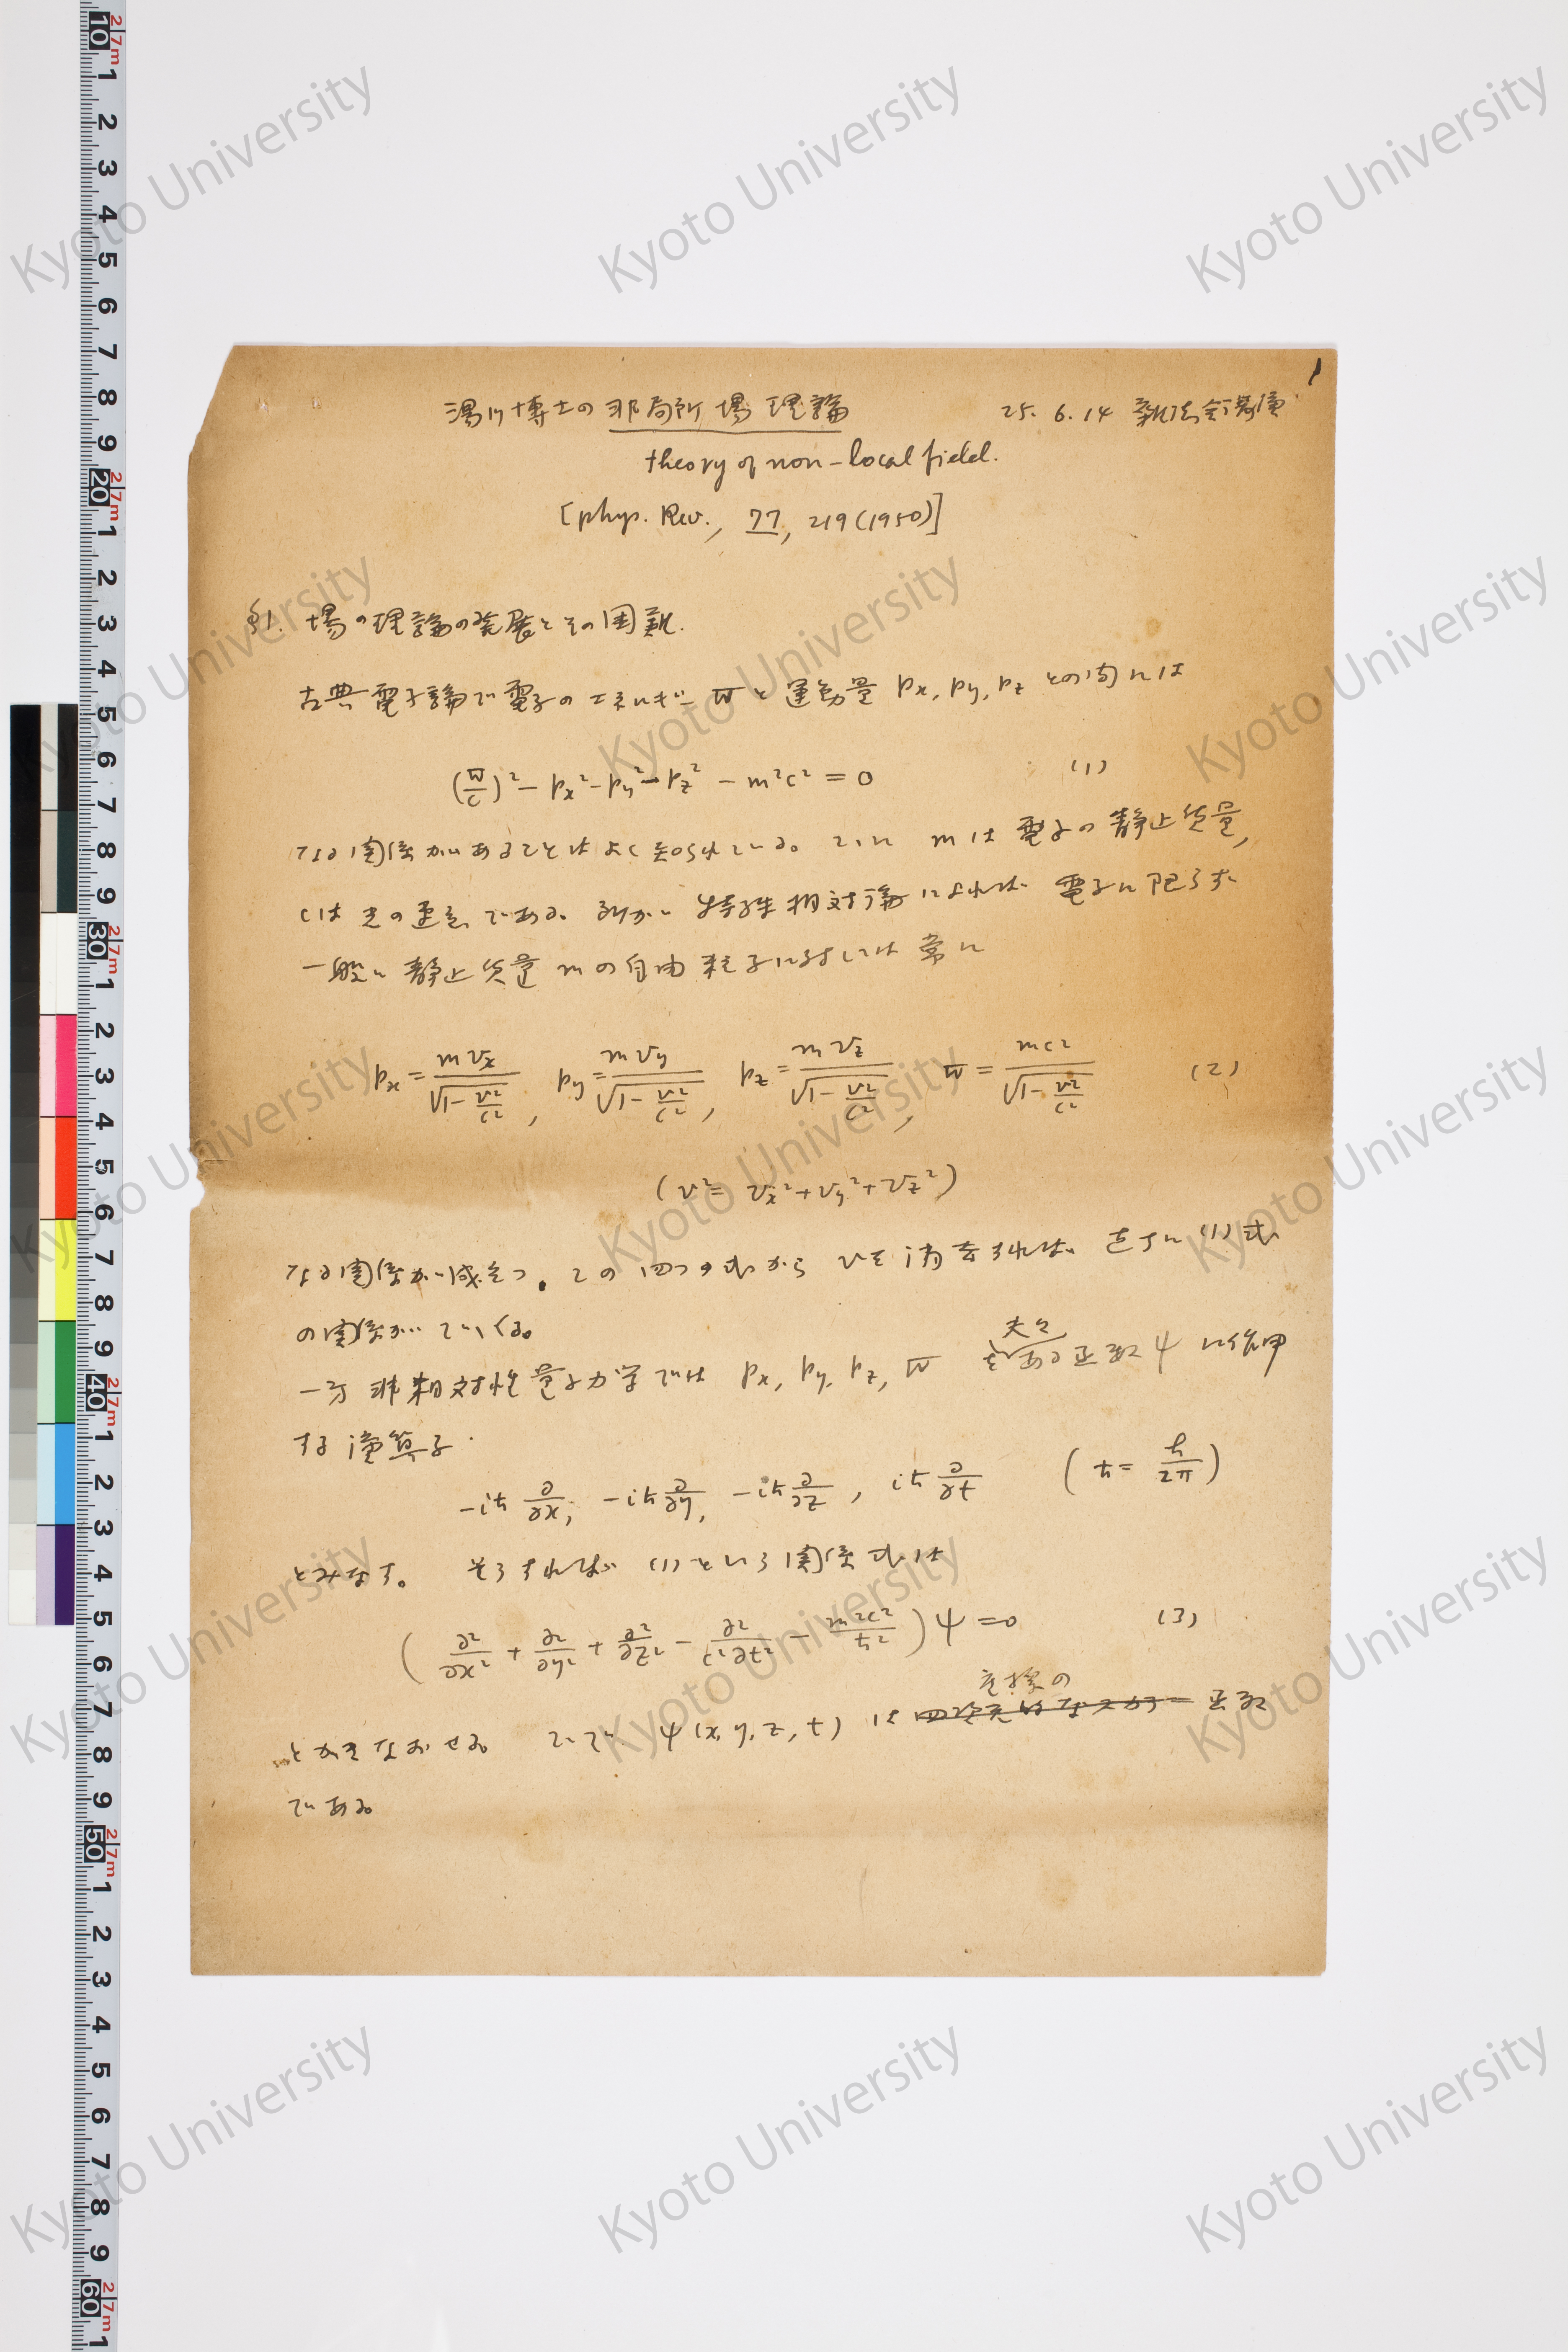 1
湯川博士の非局所場理論 25. 6. 14 雑誌会
theory of non-local field.
[phys. Rev., 77, 219 (1950)]
§1. 場の理論の発展とその困難.
古典電子論で電子のエネルギー W と運動量 px, py, pz との間には
(W/c)² − px² − py² − pz² − m²c² = 0 (1)
なる関係があることはよく知られている。こゝに m は電子の静止質量,
cは光の速さである。所が 特殊相対論によれば 電子に限らず
一般に静止質量 m の自由粒子に対しては常に
px = mvx/√(1−v²/c²), py = mvy/√(1−v²/c²), pz = mvz/√(1−v²/c²), W = mc²/√(1−v²/c²) (2)
(v² = vx² + vy² + vz²)
なる関係が成立つ。この四つの式から vを消去すれば、直ちに (1) 式
の関係がでてくる。
夫々
一方非相対性量子力学では px, py, pz, W ある函数 ψ に作用
する演算子
−iħ ∂/∂x, −iħ ∂/∂y, −iħ ∂/∂z, iħ ∂/∂t (ħ = h/2π)
とみなす。 そうすれば (1) という関係式は
(∂²/∂x² + ∂²/∂y² + ∂²/∂z² − ∂²/c²∂t² − m²c²/ħ²) ψ = 0 (3)
座標の
とかきなおせる。 こゝで ψ(x, y, z, t) は 函数
である。
Kyoto University